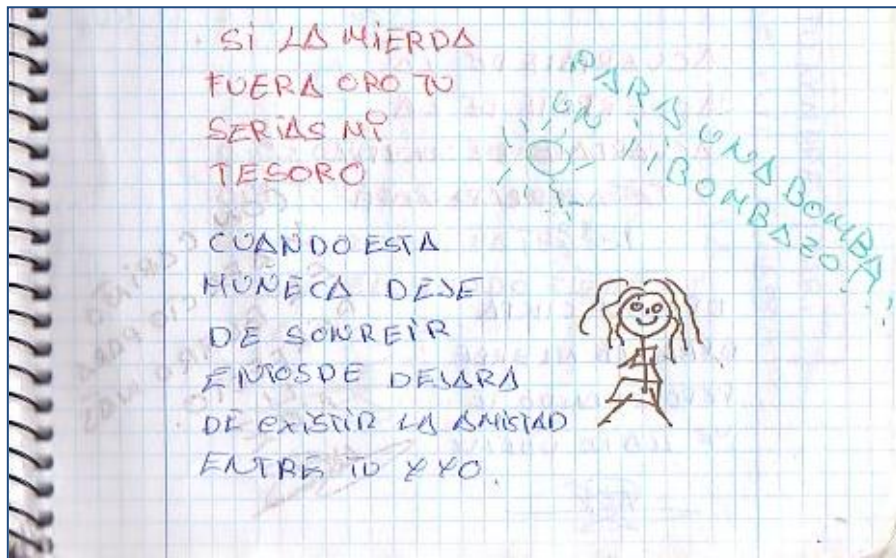 SI LA MIERDA
FUERA ORO TU
SERIAS MI
TESORO
PARA UNA BOMBA
UN ¡¡BOMBAZO!!
CUANDO ESTA
MUÑECA DEJE
DE SONREIR
ENTOSDE DEJARA
DE EXISTIR LA AMISTAD
ENTRE TU Y YO.